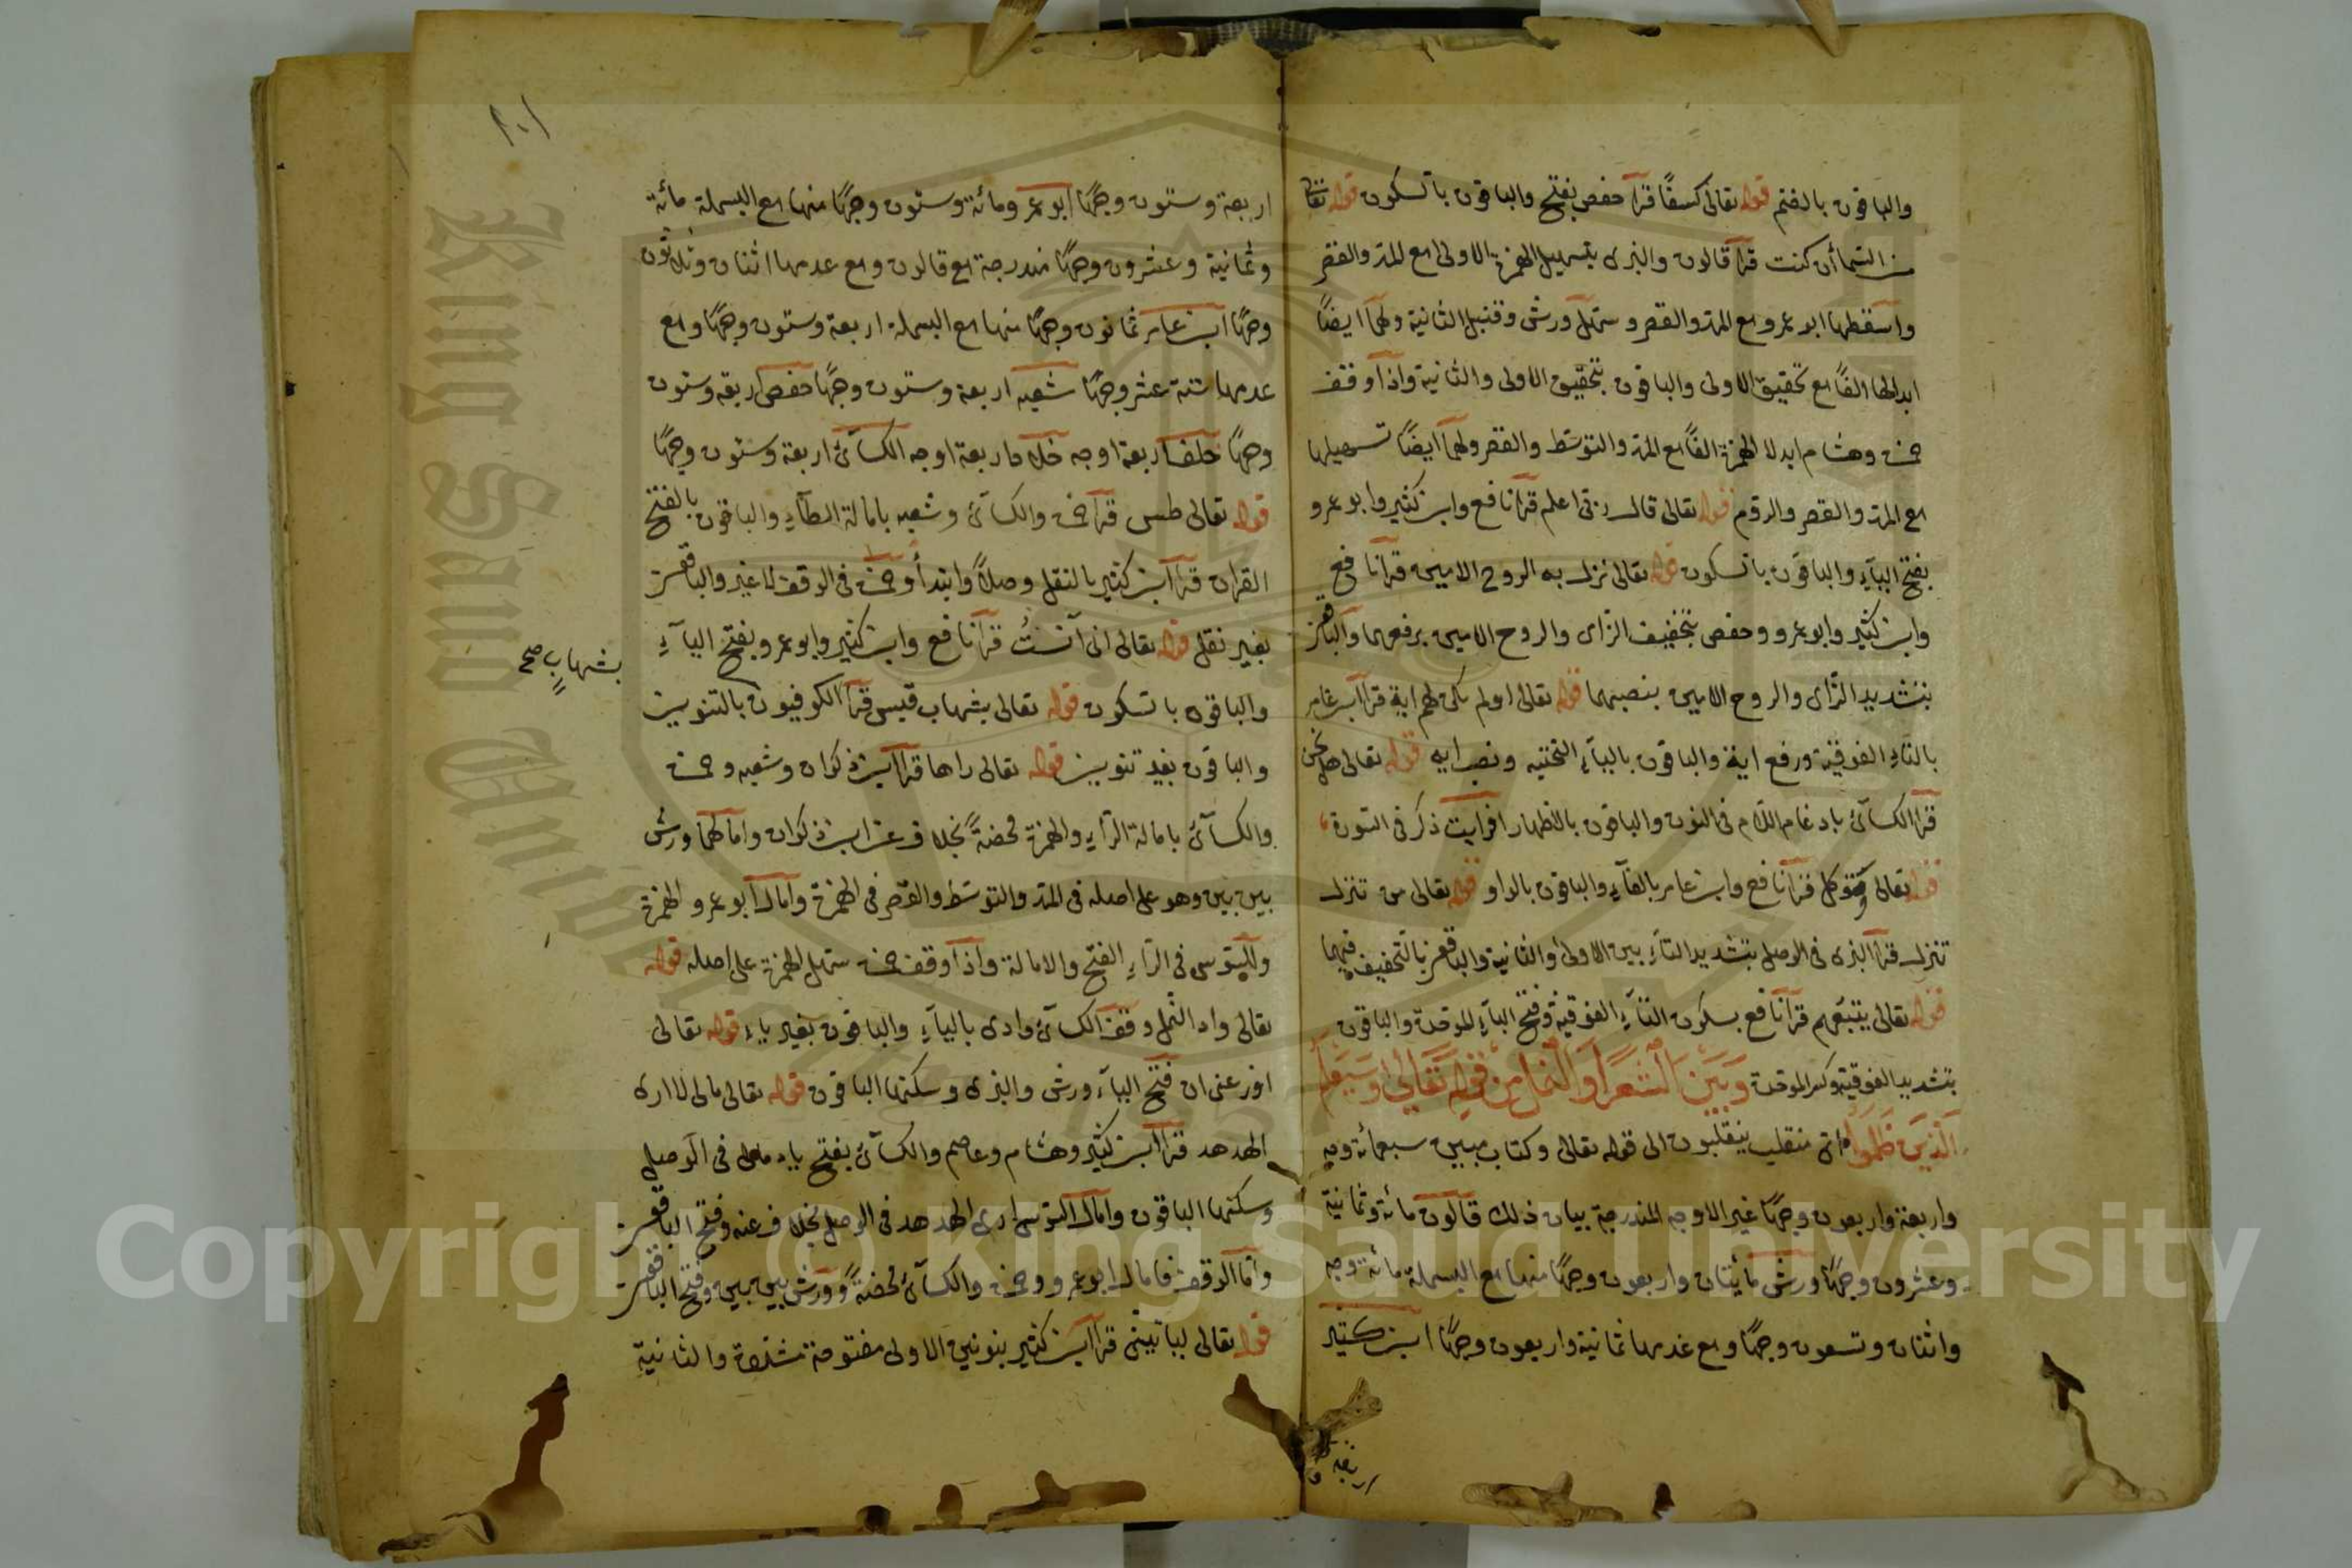 والباقون بالضم قوله تعالى كسفًا قرأ حفص بفتح والباقون بالسكون قوله تعالى
من السما أن كنت قرأ قالون والبزى بتسهيل الهمزة الاولى مع المد والقصر
واسقطها ابو عمرو مع المد والقصر وسهل ورش وقنبل الثانية ولهما ايضًا
ابدالها الفًا مع تحقيق الاولى والباقون بتحقيق الاولى والثانية واذا وقف
حمزة وهشام ابدلا الهمزة الفًا مع المد والتوسّط والقصر ولهما ايضًا تسهيلها
مع المد والقصر والروم قوله تعالى قال ربى اعلم قرأ نافع وابن كثير وابو عمرو
بفتح الياء والباقون بالسكون قوله تعالى نزل به الروح الامين قرأ نافع
وابن كثير وابو عمرو وحفص بتخفيف الزاى والروح الامين برفعهما والباقون
بتشديد الزاى والروح الامين بنصبهما قوله تعالى اولم يكن لهم اية قرأ ابن عامر
بالتاء الفوقية ورفع اية والباقون بالياء التحتيه ونصب ايه قوله تعالى هل نحن
قرأ الكسآئ بادغام اللام فى النون والباقون بالاظهار افرايت ذكر فى السورة
قوله تعالى وتوكل قرأ نافع وابن عامر بالفآء والباقون بالواو قوله تعالى من تنزل
تنزل قرأ البزى فى الوصل بتشديد التاء بين الاولى والثانية والباقون بالتخفيف فيهما
قوله تعالى يتبعهم قرأ نافع بسكون التآء الفوقية وفتح الباء الموحدة والباقون
بتشديد الفوقية وكسر الموحدة وبين الشعرا والنمل من قوله تعالى وسيعلم
الذين ظلموا اى منقلب ينقلبون الى قوله تعالى وكتاب مبين سبعمائة وجه
واربعة واربعون وجهًا غير الاوجه المندرجة بيان ذلك قالون مائة وثمانية
وعشرون وجهًا ورش مائتان واربعون وجهًا منها مع البسملة مائة وجه
واثنان وتسعون وجهًا ومع عدمها ثمانية واربعون وجهًا ابن كثير
اربعة و
٢٠١
اربعة وستون وجهًا ابو عمرو مائة وستون وجهًا منها مع البسملة مائة
وثمانية وعشرون وجهًا مندرجة مع قالون ومع عدمها اثنان وثلاثون
وجهًا ابن عامر ثمانون وجهًا منها مع البسملة اربعة وستون وجهًا ومع
عدمها ستة عشر وجهًا شعبه اربعة وستون وجهًا حفص اربعة وستون
وجهًا خلف اربعة اوجه خلاد اربعة اوجه الكسآئ اربعة وستون وجهًا
قوله تعالى طس قرأ حمزة والكسآئ وشعبه بامالة الطآء والباقون بالفتح
القران قرأ ابن كثير بالنقل وصلاً وابتدأ وحمزة فى الوقف لا غير والباقون
بغير نقل قوله تعالى انى آنستُ قرأ نافع وابن كثير وابو عمرو بفتح اليآء
بشهابٍ صح
والباقون بالسكون قوله تعالى بشهاب قبس قرأ الكوفيون بالتنوين
والباقون بغير تنوين قوله تعالى راها قرأ ابن ذكوان وشعبه وحمزة
والكسآئ بامالة الراء والهمزة محضةً بخلاف عن ابن ذكوان وامالهما ورش
بين بين وهو على اصله فى المد والتوسّط والقصر فى الهمزة وامال ابو عمرو الهمزة
وللسوسى فى الراء الفتح والامالة واذا وقف حمزة سهل الهمزة على اصله قوله
تعالى واد النمل وقف الكسآئ وادى باليآء والباقون بغير ياء قوله تعالى
اوزعنى ان فتح الياء ورش والبزى وسكنها الباقون قوله تعالى مالى لا ارى
الهدهد قرأ ابن كثير وهشام وعاصم والكسآئ بفتح ياء مالى فى الوصل
وسكنها الباقون وامال السوسى ارى الهدهد فى الوصل بخلاف عنه وفتح الباقون
وأما الوقف فامال ابو عمرو وحمزة والكسآئ محضةً وورش بين بين وفتح الباقون
قوله تعالى ليأتينى قرأ ابن كثير بنونين الاولى مفتوحة مشددة والثانية
Copyright © King Saud University
King Saud University